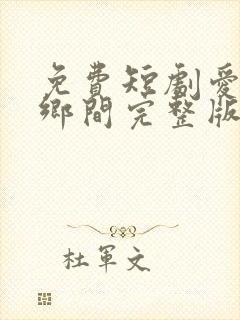 免費短劇愛
鄉間完整版
杜軍文